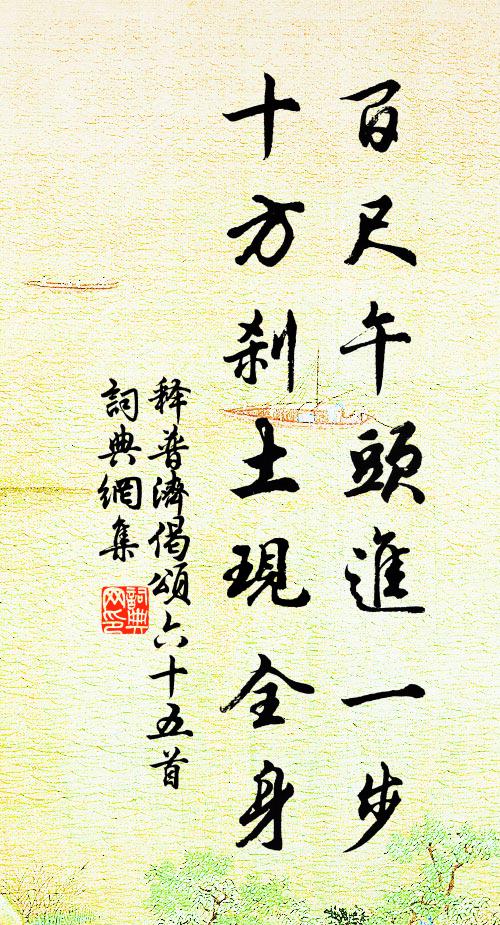 百尺午頭進一步
十方刹土現全身
释普濟偈頌六十五首
詞典網集
詞典網印